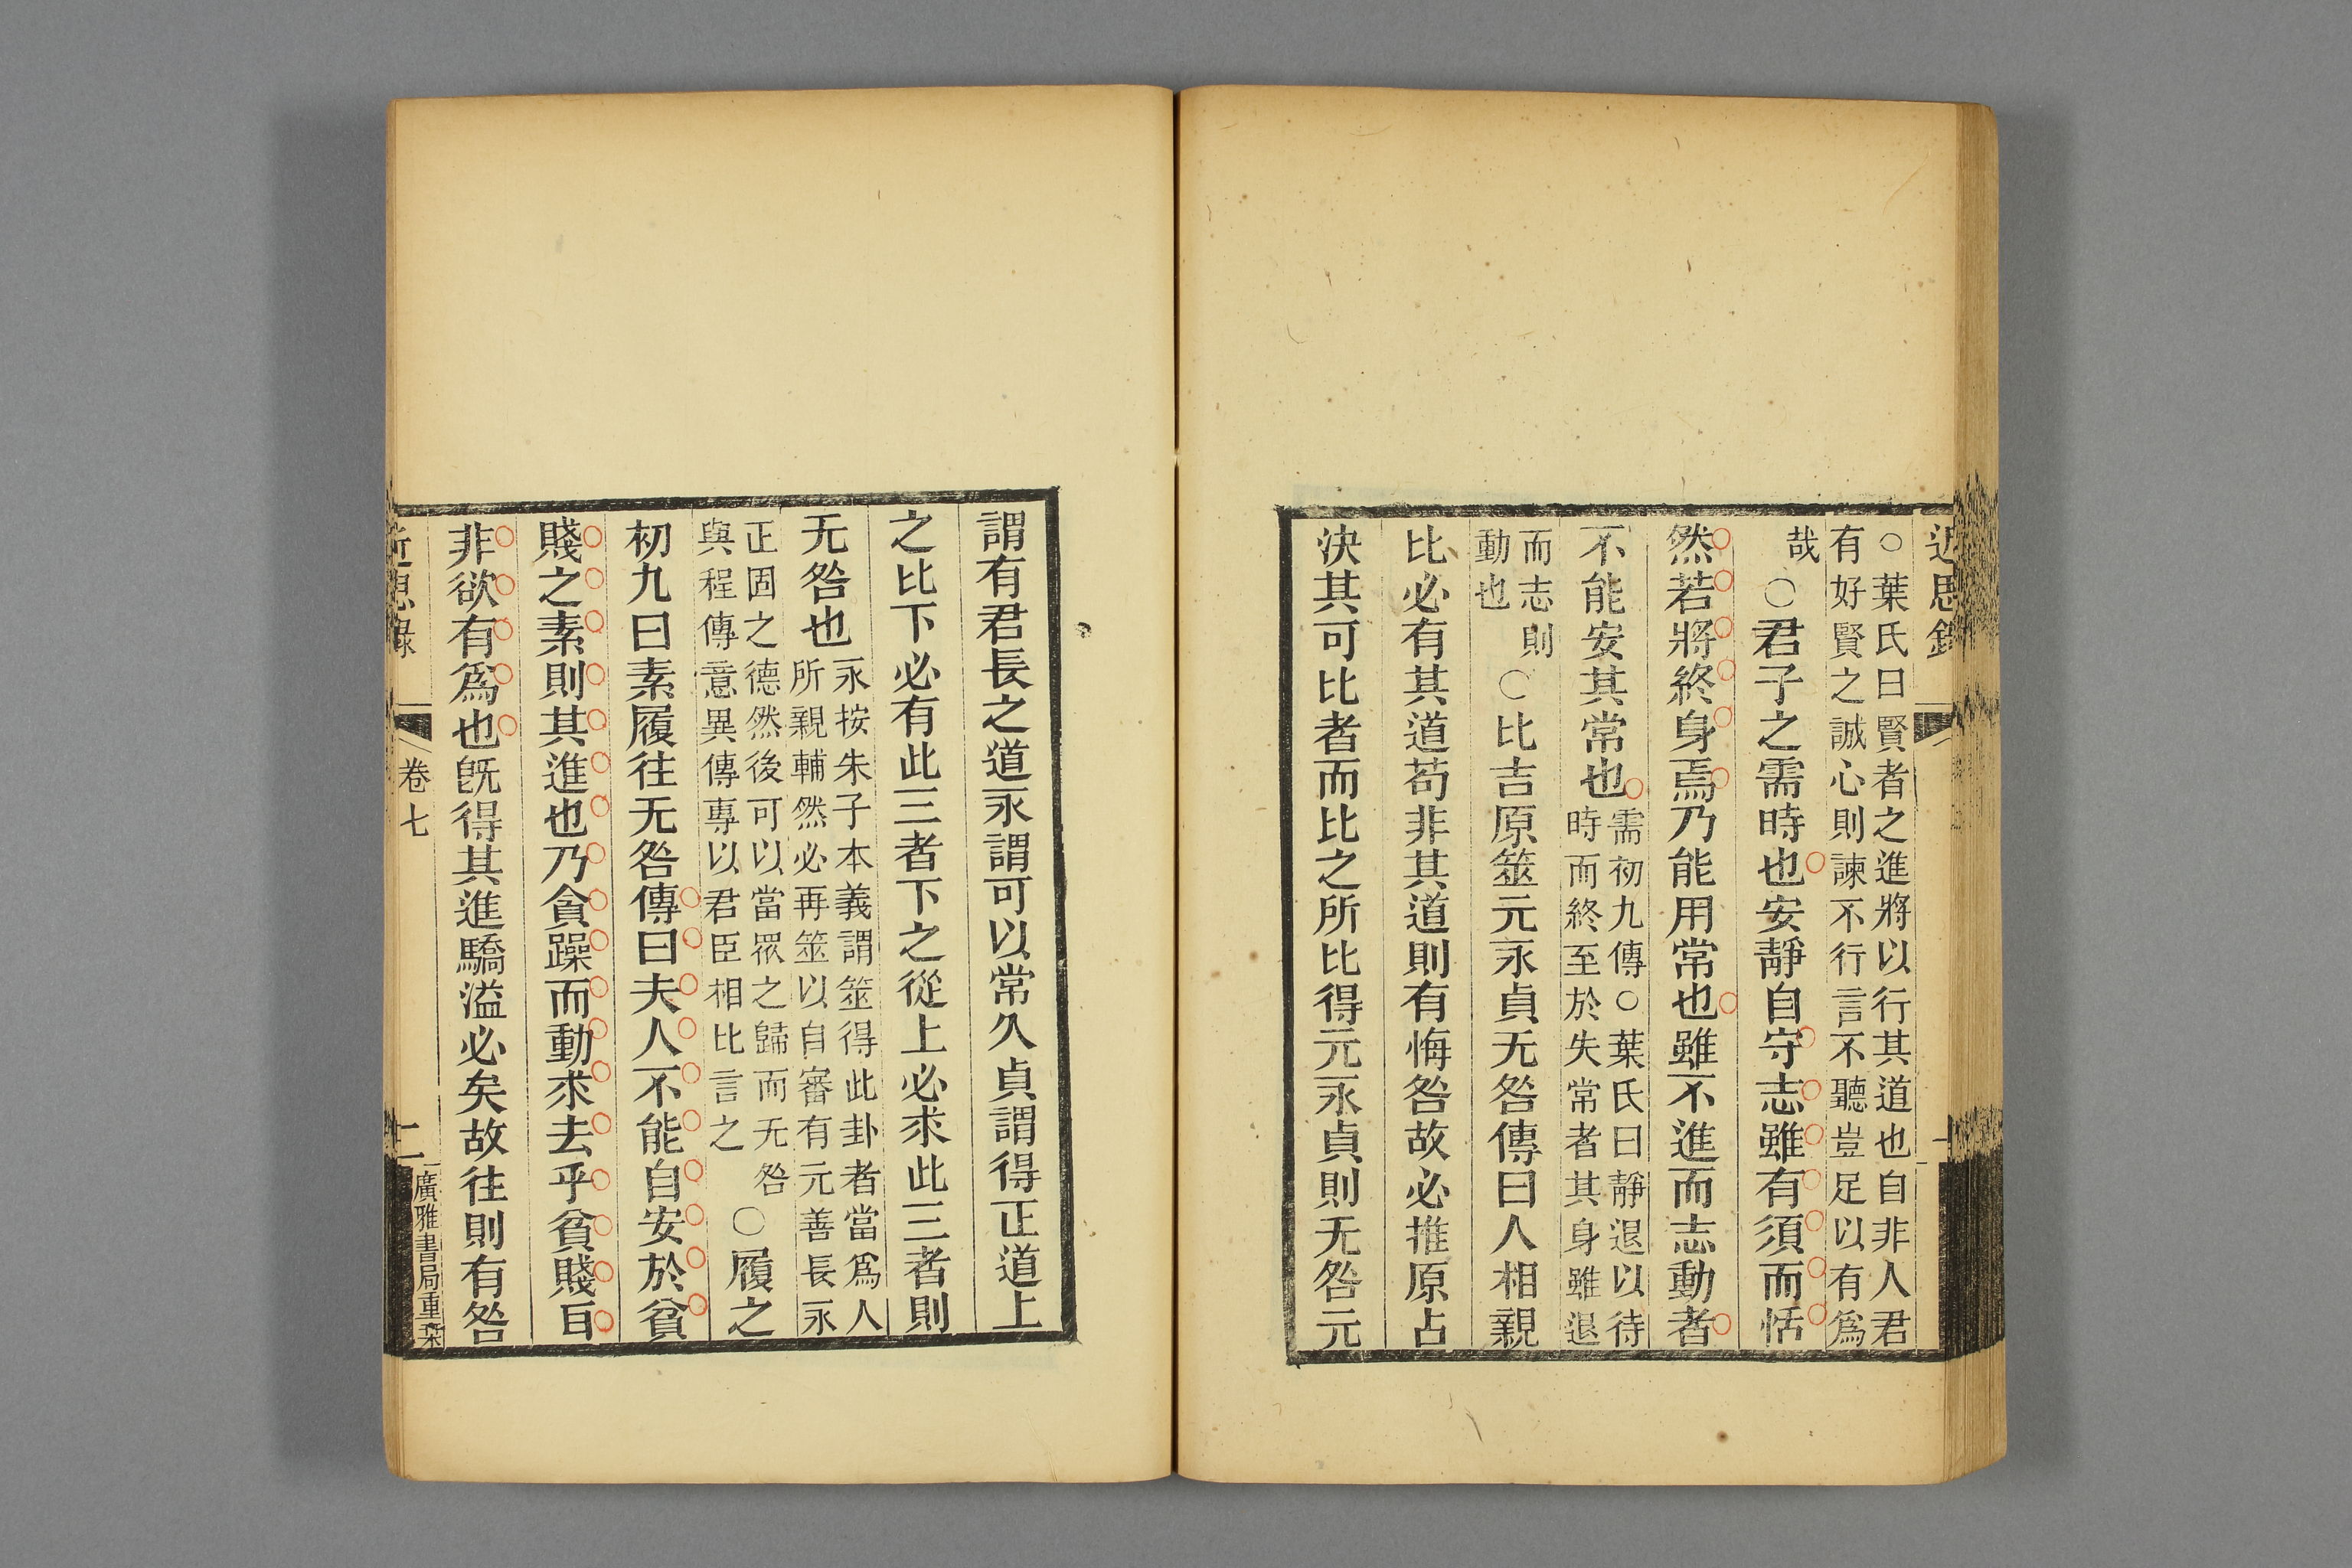 近思錄
○葉氏曰賢者之進將以行其道也自非人君
有好賢之誠心則諫不行言不聽豈足以有爲
哉
○君子之需時也安靜自守志雖有須而恬
然若將終身焉乃能用常也雖不進而志動者
不能安其常也
需初九傳○葉氏曰靜退以待
時而終至於失常者其身雖退
而志則
動也
○比吉原筮元永貞无咎傳曰人相親
比必有其道苟非其道則有悔咎故必推原占
決其可比者而比之所比得元永貞則无咎元
謂有君長之道永謂可以常久貞謂得正道上
之比下必有此三者下之從上必求此三者則
无咎也
永按朱子本義謂筮得此卦者當爲人
所親輔然必再筮以自審有元善長永
正固之德然後可以當眾之歸而无咎
與程傳意異傳專以君臣相比言之
○履之
初九曰素履往无咎傳曰夫人不能自安於貧
賤之素則其進也乃貪躁而動求去乎貧賤耳
非欲有爲也旣得其進驕溢必矣故往則有咎
近思錄
卷七
二
廣雅書局重栞